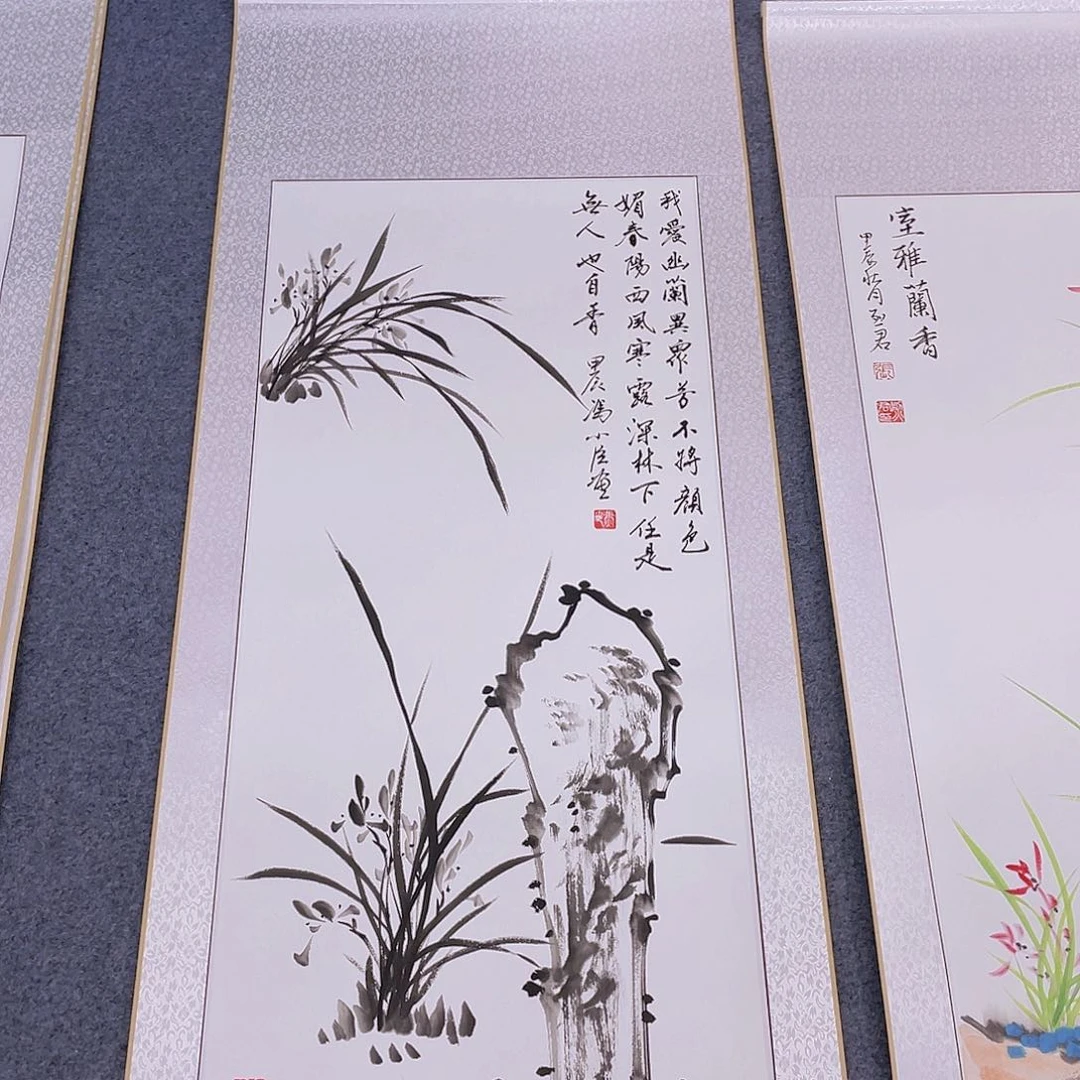 我愛幽蘭異眾芳不將顏色
媚春陽西風寒露深林下任是
無人也自香
甲辰馮小
室雅蘭香
甲辰